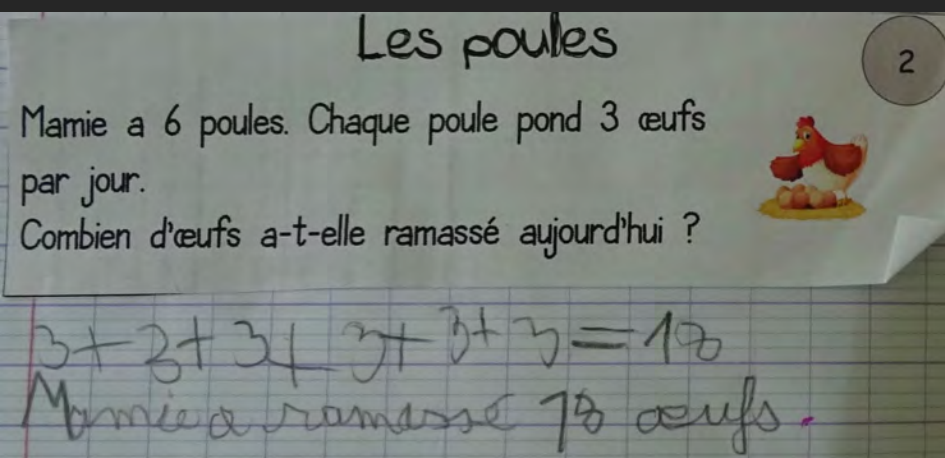 Les poules
2
Mamie a 6 poules. Chaque poule pond 3 œufs
par jour.
Combien d'œufs a-t-elle ramassé aujourd'hui ?
3+3+3+3+3+3=18
Mamie a ramassé 18 œufs.